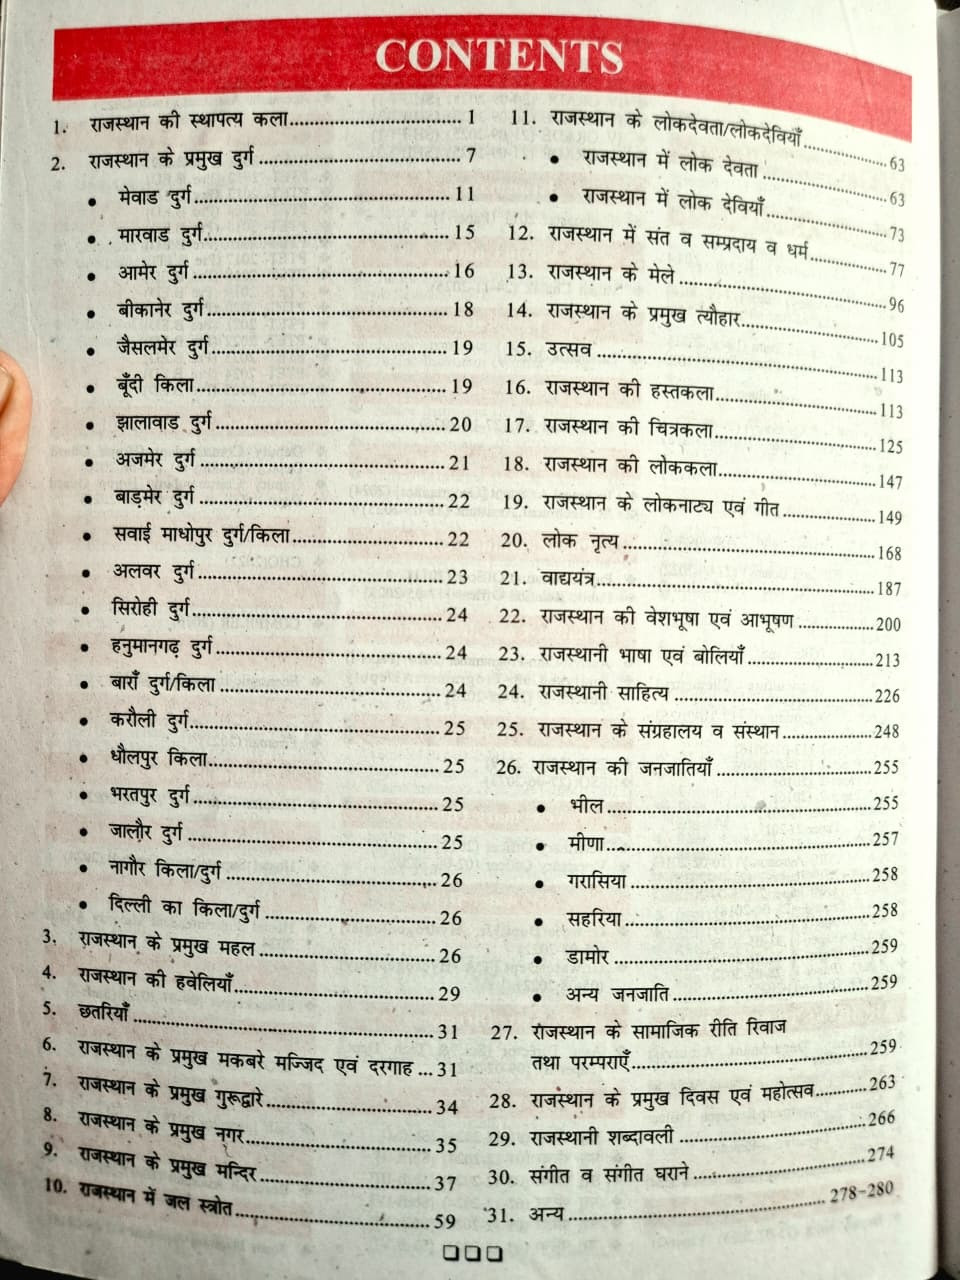 CONTENTS
1. राजस्थान की स्थापत्य कला.......... 1
2. राजस्थान के प्रमुख दुर्ग.......... 7
• मेवाड दुर्ग.......... 11
• मारवाड दुर्ग.......... 15
• आमेर दुर्ग.......... 16
• बीकानेर दुर्ग.......... 18
• जैसलमेर दुर्ग.......... 19
• बूँदी किला.......... 19
• झालावाड दुर्ग.......... 20
• अजमेर दुर्ग.......... 21
• बाड़मेर दुर्ग.......... 22
• सवाई माधोपुर दुर्ग/किला.......... 22
• अलवर दुर्ग.......... 23
• सिरोही दुर्ग.......... 24
• हनुमानगढ़ दुर्ग.......... 24
• बाराँ दुर्ग/किला.......... 24
• करौली दुर्ग.......... 25
• धौलपुर किला.......... 25
• भरतपुर दुर्ग.......... 25
• जालौर दुर्ग.......... 25
• नागौर किला/दुर्ग.......... 26
• दिल्ली का किला/दुर्ग.......... 26
3. राजस्थान के प्रमुख महल.......... 26
4. राजस्थान की हवेलियाँ.......... 29
5. छतरियाँ.......... 31
6. राजस्थान के प्रमुख मकबरे मज्जिद एवं दरगाह ... 31
7. राजस्थान के प्रमुख गुरूद्वारे.......... 34
8. राजस्थान के प्रमुख नगर.......... 35
9. राजस्थान के प्रमुख मन्दिर.......... 37
10. राजस्थान में जल स्त्रोत.......... 59
11. राजस्थान के लोकदेवता/लोकदेवियाँ.......... 63
• राजस्थान में लोक देवता.......... 63
• राजस्थान में लोक देवियाँ.......... 73
12. राजस्थान में संत व सम्प्रदाय व धर्म.......... 77
13. राजस्थान के मेले.......... 96
14. राजस्थान के प्रमुख त्यौहार.......... 105
15. उत्सव.......... 113
16. राजस्थान की हस्तकला.......... 113
17. राजस्थान की चित्रकला.......... 125
18. राजस्थान की लोककला.......... 147
19. राजस्थान के लोकनाट्य एवं गीत.......... 149
20. लोक नृत्य.......... 168
21. वाद्ययंत्र.......... 187
22. राजस्थान की वेशभूषा एवं आभूषण.......... 200
23. राजस्थानी भाषा एवं बोलियाँ.......... 213
24. राजस्थानी साहित्य.......... 226
25. राजस्थान के संग्रहालय व संस्थान.......... 248
26. राजस्थान की जनजातियाँ.......... 255
• भील.......... 255
• मीणा.......... 257
• गरासिया.......... 258
• सहरिया.......... 258
• डामोर.......... 259
• अन्य जनजाति.......... 259
27. राजस्थान के सामाजिक रीति रिवाज
तथा परम्पराएँ.......... 259
28. राजस्थान के प्रमुख दिवस एवं महोत्सव.......... 263
29. राजस्थानी शब्दावली.......... 266
30. संगीत व संगीत घराने.......... 274
31. अन्य.......... 278-280